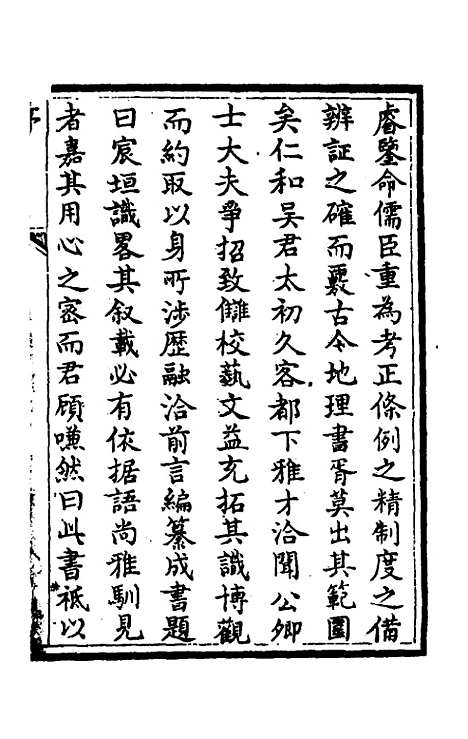 睿鑒命儒臣重為考正條例之精制度之備
辨証之確而覈古今地理書胥莫出其範圍
矣仁和吳君太初久客都下雅才洽聞公卿
士大夫爭招致讎校藝文益充拓其識博觀
而約取以身所涉歷融洽前言編纂成書題
曰宸垣識畧其叙載必有依据語尚雅馴見
者嘉其用心之密而君顧嗛然曰此書祗以